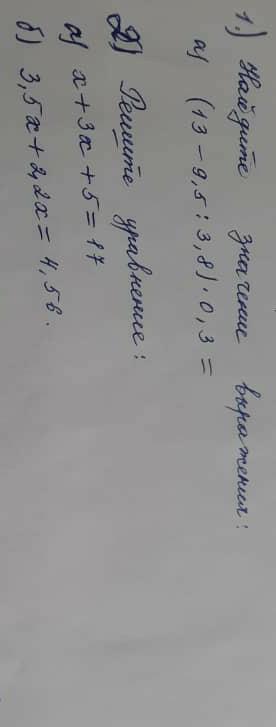 1.) Найдите значение выражения:
а) (13 - 9,5 : 3,8) · 0,3 =
2) Решите уравнение:
а) x + 3x + 5 = 17
б) 3,5x + 2,2x = 4,56.